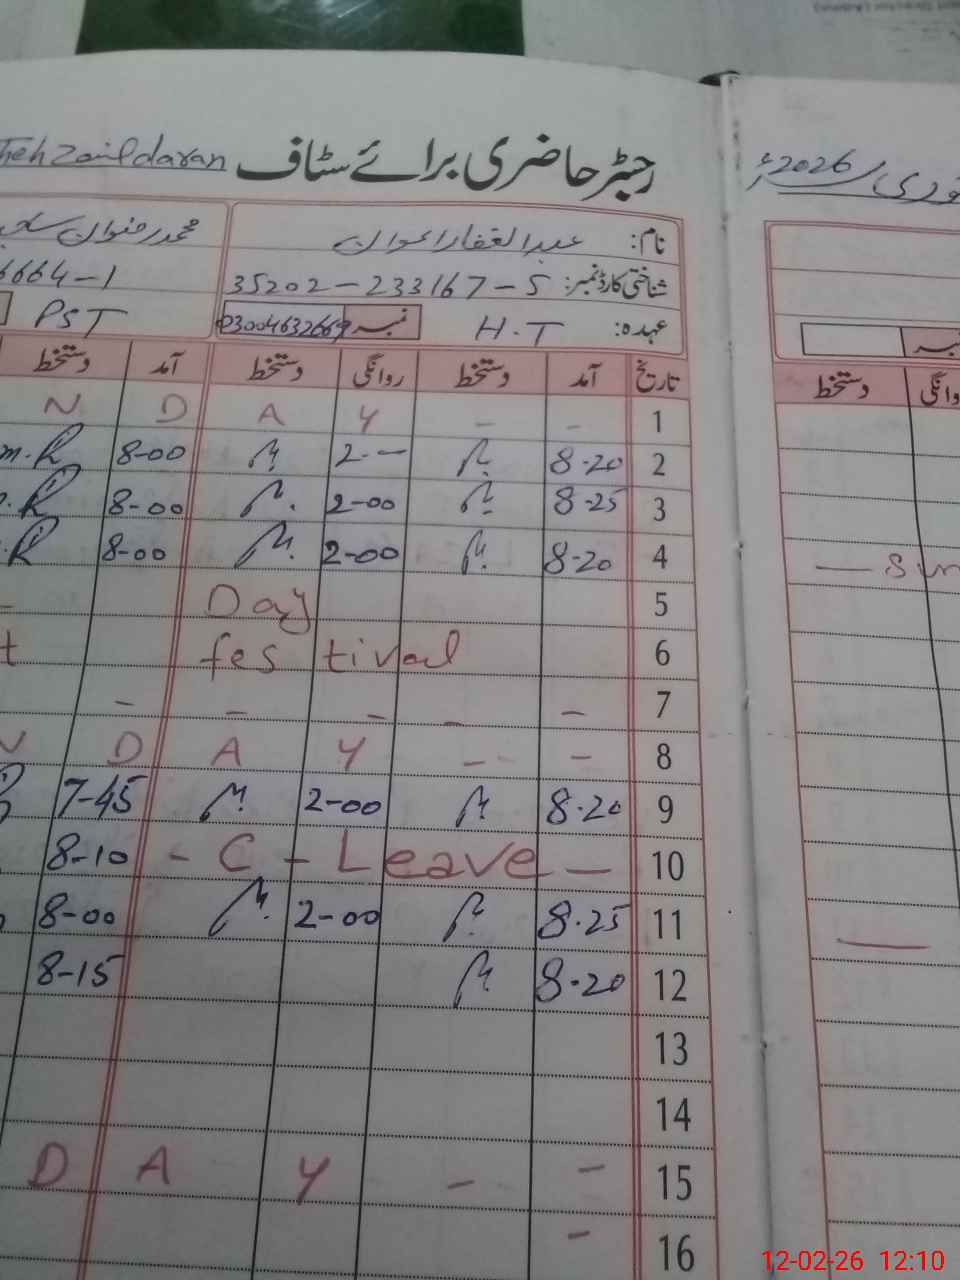 رجسٹر حاضری برائے سٹاف
2026ء
نام: عبدالغفار اعوان
محمد رضوان
شناختی کارڈ نمبر: 35202-233167-5
6664-1
عہدہ: H.T نمبر 03004632669
PST
تاریخ آمد دستخط روانگی دستخط آمد دستخط
دستخط
1 - - Y A D N
2 8-20 2-- 8-00
3 8-25 2-00 8-00
4 8-20 2-00 8-00
5 Day
6 festival
7 - - - - -
8 - - Y A D N
9 8-20 2-00 7-45
10 - C - Leave - 8-10
11 8-25 2-00 8-00
12 8-20 8-15
13
14
15 - - Y A D
16 -
12-02-26 12:10